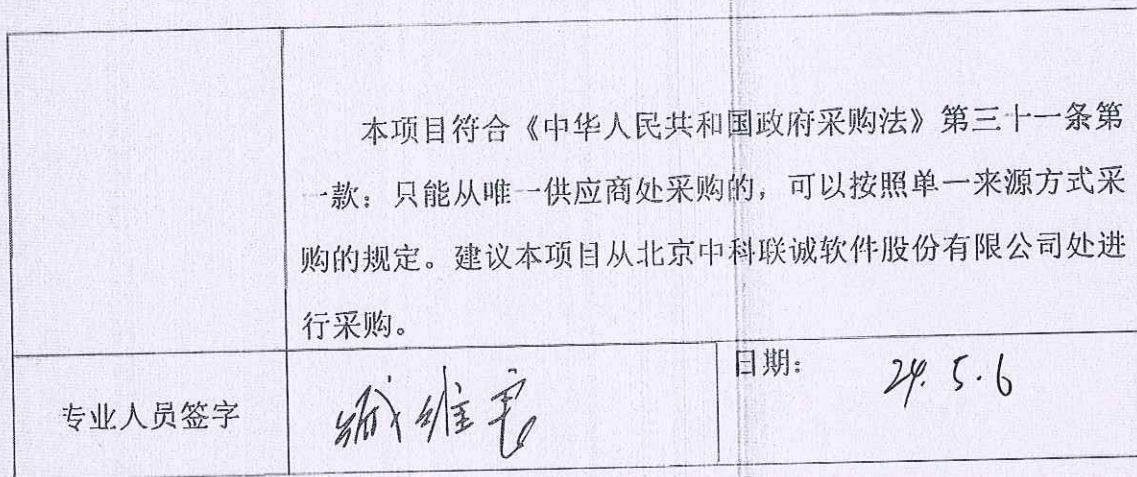 本项目符合《中华人民共和国政府采购法》第三十一条第
一款：只能从唯一供应商处采购的，可以按照单一来源方式采
购的规定。建议本项目从北京中科联诚软件股份有限公司处进
行采购。
专业人员签字
日期：
24.5.6